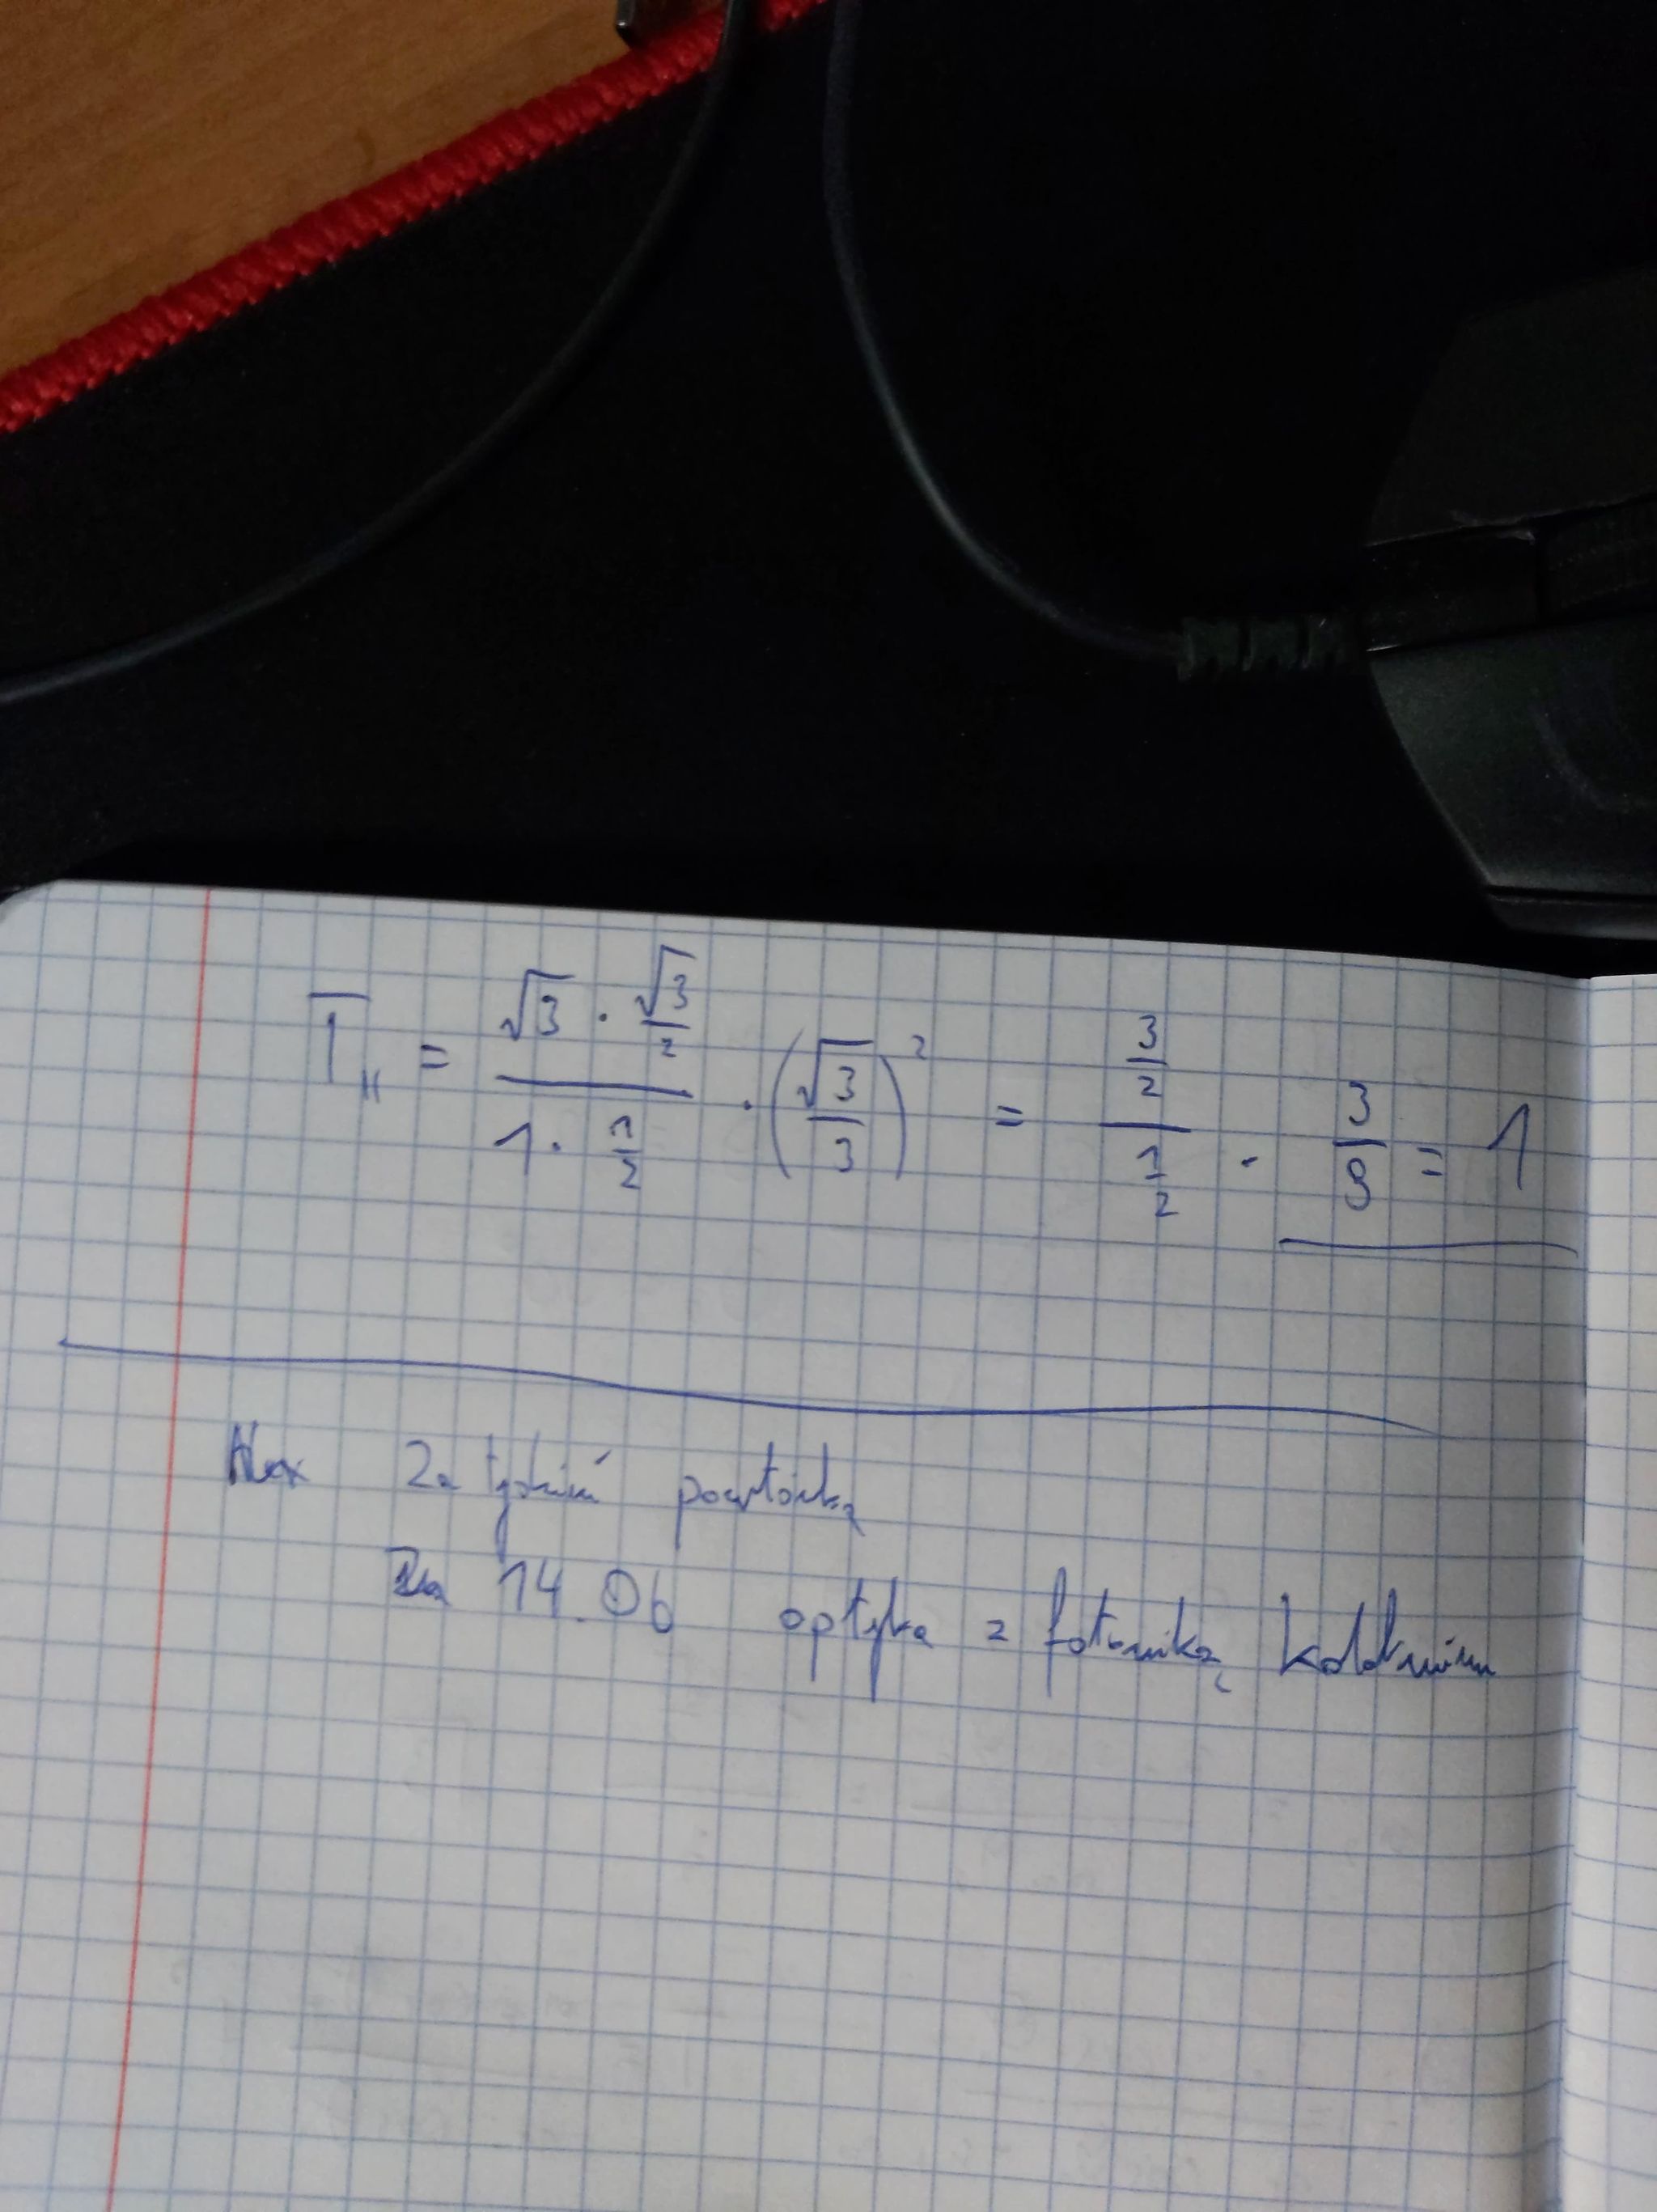 T_{||} = \frac{\sqrt{3} \cdot \frac{\sqrt{3}}{2}}{1 \cdot \frac{1}{2}} \cdot \left(\frac{\sqrt{3}}{3}\right)^2 = \frac{\frac{3}{2}}{\frac{1}{2}} \cdot \frac{3}{9} = 1
Za tydzień powtórka
14.06 optyka z fotoniką kolokwium